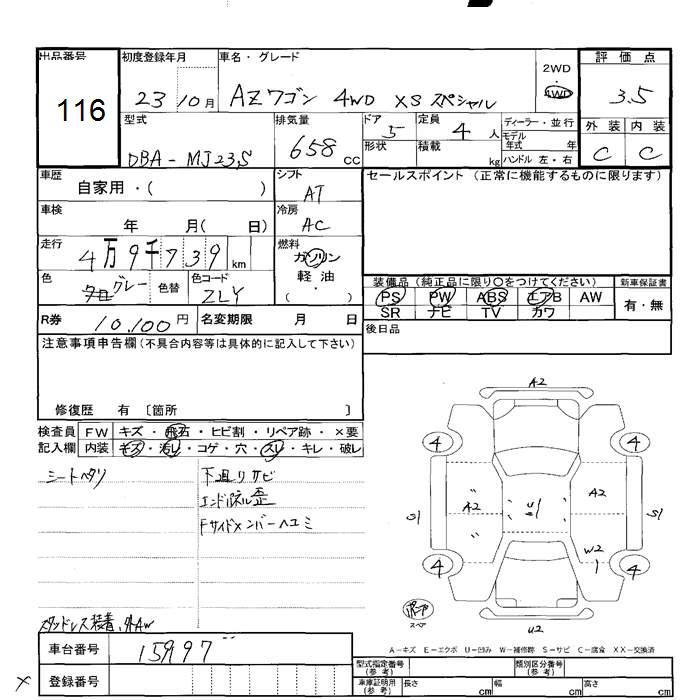 出品番号 初度登録年月 車名・グレード 2WD 評価点
116 23/10月 AZワゴン 4WD XSスペシャル 4WD 3.5
型式 排気量 ドア 5 定員 4人 ディーラー・並行 外装 内装
DBA-MJ23S 658cc 形状 積載 kg モデル年式 年 C C
ハンドル 左・右
車歴 自家用・( ) シフト AT セールスポイント (正常に機能するものに限ります)
車検 年 月( 日) 冷房 AC
走行 4万9千739km 燃料 ガソリン
色 グレー 色替 色コード ZLY 軽油
( ・ )
装備品 (純正品に限り○をつけてください) 新車保証書
PS PW ABS エアB AW 有・無
SR ナビ TV カワ
R券 10,100円 名変期限 月 日 後日品
注意事項申告欄(不具合内容等は具体的に記入して下さい)
修復歴 有 〔箇所 〕
検査員 FW キズ・飛石・ヒビ割・リペア跡・×要
記入欄 内装 キズ・汚レ・コゲ・穴・スレ・キレ・破レ
シートヘタリ 下廻りサビ
エンドパネル歪
Fサイドメンバーヘコミ
A2
4 4
A2 U1 A2
S1 S1
W2
4 1 4
スペア
U2
スタッドレス装着、外AW
A-キズ E-エクボ U-凹み W-補修跡 S-サビ C-腐食 XX-交換済
車台番号 159197
登録番号
型式指定番号(参考) 類別区分番号(参考)
車庫証明用(参考) 長さ cm 幅 cm 高さ cm
×